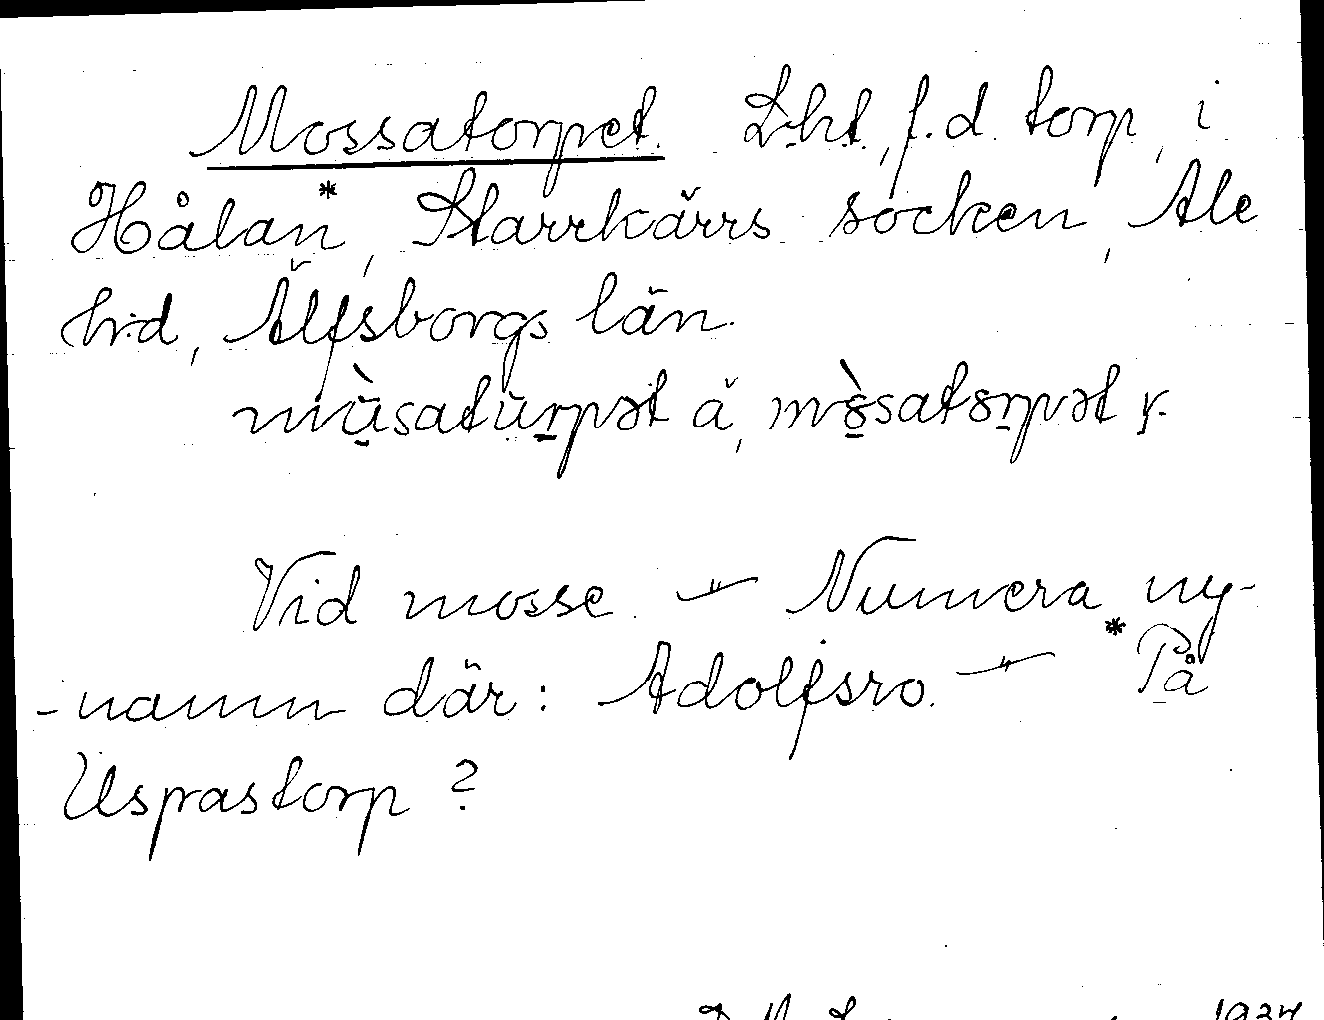 Mossatorpet. Lht, f.d. torp, i
Hålan*, Starrkärrs socken, Ale
hrd, Älfsborgs län.
Vid mosse. — Numera ny-
-namn där: Adolfsro. — * På
Uspastorp?
1934